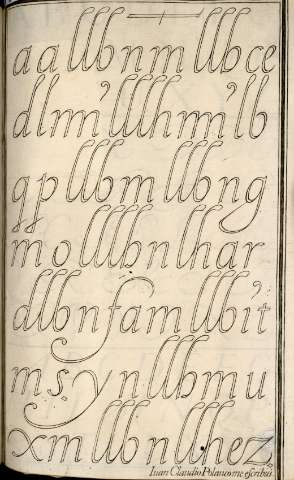 aalllbnmllbce
dlnm'lllhm'lb
qpllbmllbng
molllbnlhar
dllbnſamllbit
msynllbmu
xmllbnllhez
Iuan Claudio Polanco me escribia